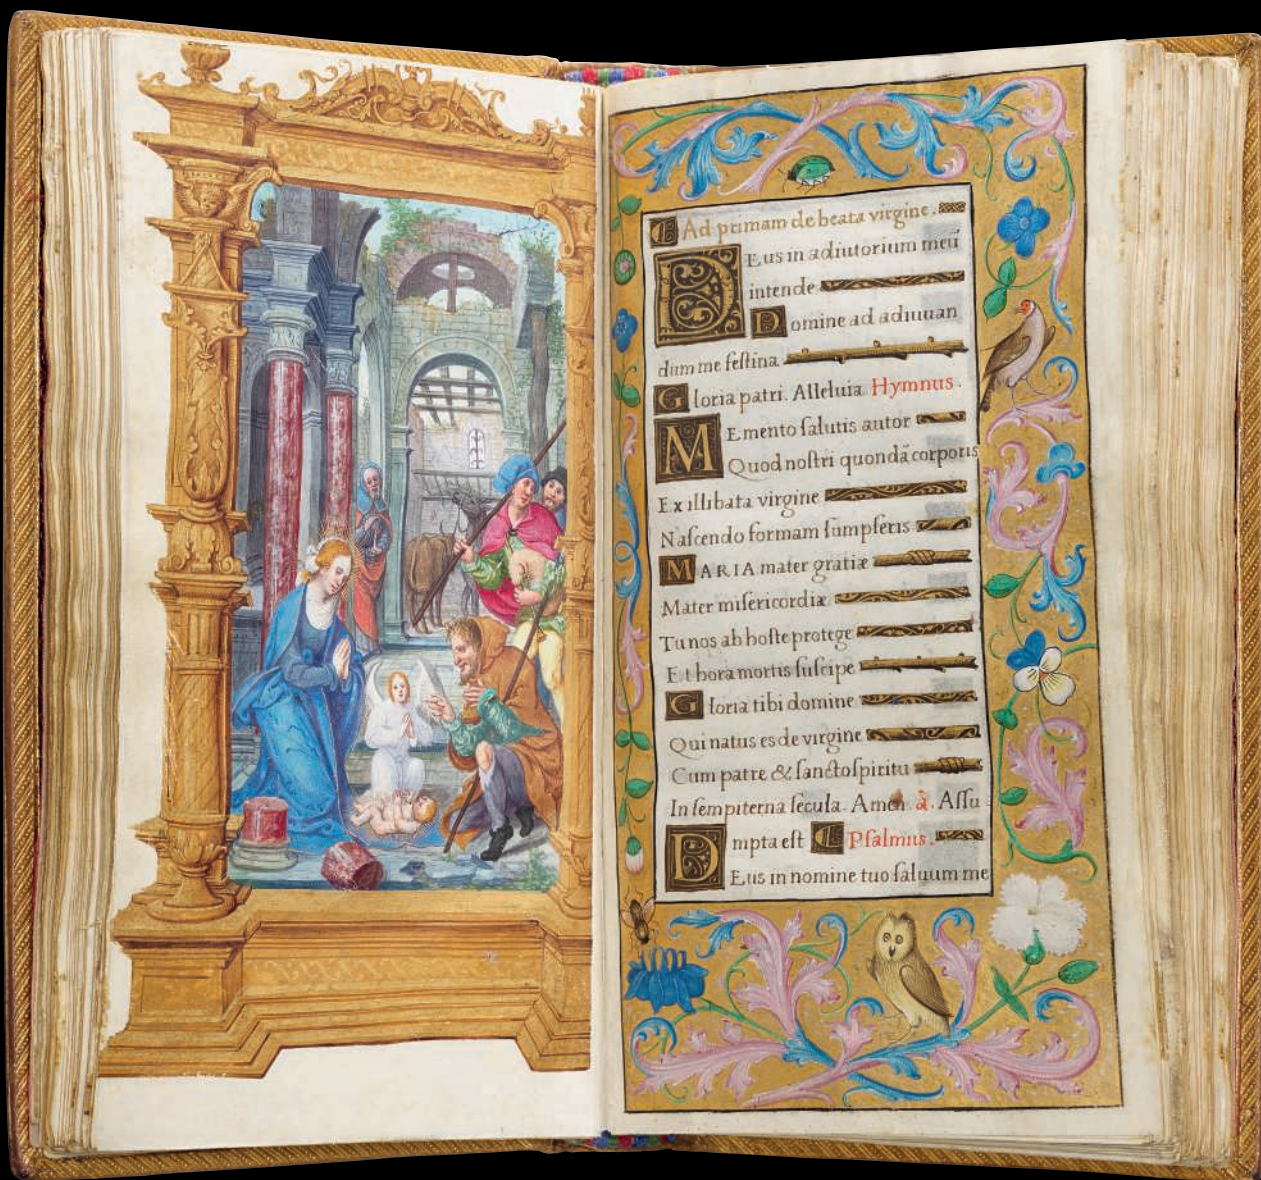 Ad primam de beata virgine.
Deus in adiutorium meū
intende
Domine ad adiuuan
dum me festina
Gloria patri. Alleluia Hymnus.
Memento salutis autor
Quod nostri quondā corporis
Ex illibata virgine
Nascendo formam sumpseris
MARIA mater gratiæ
Mater misericordiæ
Tu nos ab hoste protege
Et hora mortis suscipe
Gloria tibi domine
Qui natus es de virgine
Cum patre & sancto spiritu
In sempiterna secula. Amen. ā. Assu
mpta est Psalmus.
Deus in nomine tuo saluum me